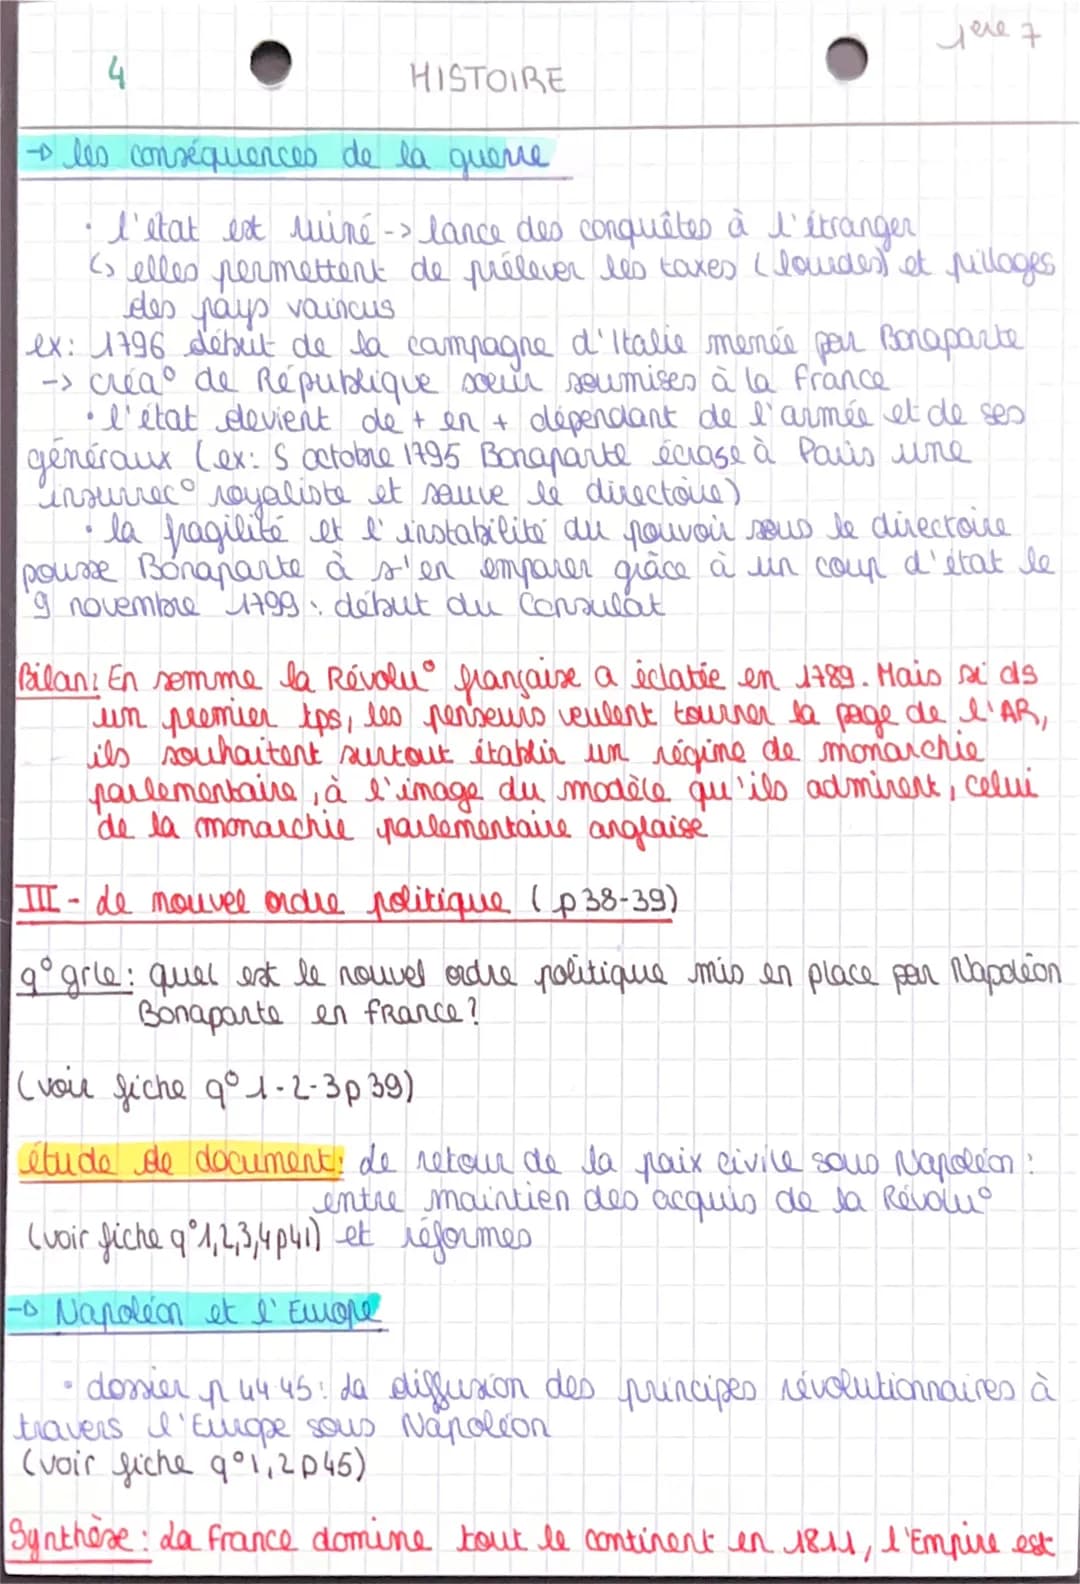 1ere 7
4
HISTOIRE
→ les conséquences de la guerre
· l'état est ruiné -> lance des conquêtes à l'étranger
↳ elles permettent de prélever les taxes (lourdes) et pillages
des pays vaincus
ex: 1796 début de la campagne d'Italie menée par Bonaparte
-> créa° de République sœur soumises à la France
· l'état devient de + en + dépendant de l'armée et de ses
généraux (ex: 5 octobre 1795 Bonaparte écrase à Paris une
insurrec° royaliste et sauve le directoire)
· la fragilité et l'instabilité du pouvoir sous le directoire
pousse Bonaparte à s'en emparer grâce à un coup d'état le
9 novembre 1799 : début du Consulat
Bilan: En somme la Révolu° française a éclatée en 1789. Mais si ds
un premier tps, les penseurs veulent tourner la page de l'AR,
ils souhaitent surtout établir un régime de monarchie
parlementaire, à l'image du modèle qu'ils admirent, celui
de la monarchie parlementaire anglaise
III - Le nouvel ordre politique (p38-39)
q° grle: quel est le nouvel ordre politique mis en place par Napoléon
Bonaparte en France?
(voir fiche q° 1-2-3p39)
étude de document: Le retour de la paix civile sous Napoléon :
entre maintien des acquis de la Révolu°
(voir fiche q°1,2,3,4p41) et réformes
→ Napoléon et l'Europe
· dossier p 44-45: La diffusion des principes révolutionnaires à
travers l'Europe sous Napoléon
(voir fiche q°1,2p45)
Synthèse : La France domine tout le continent en 1811, l'Empire est